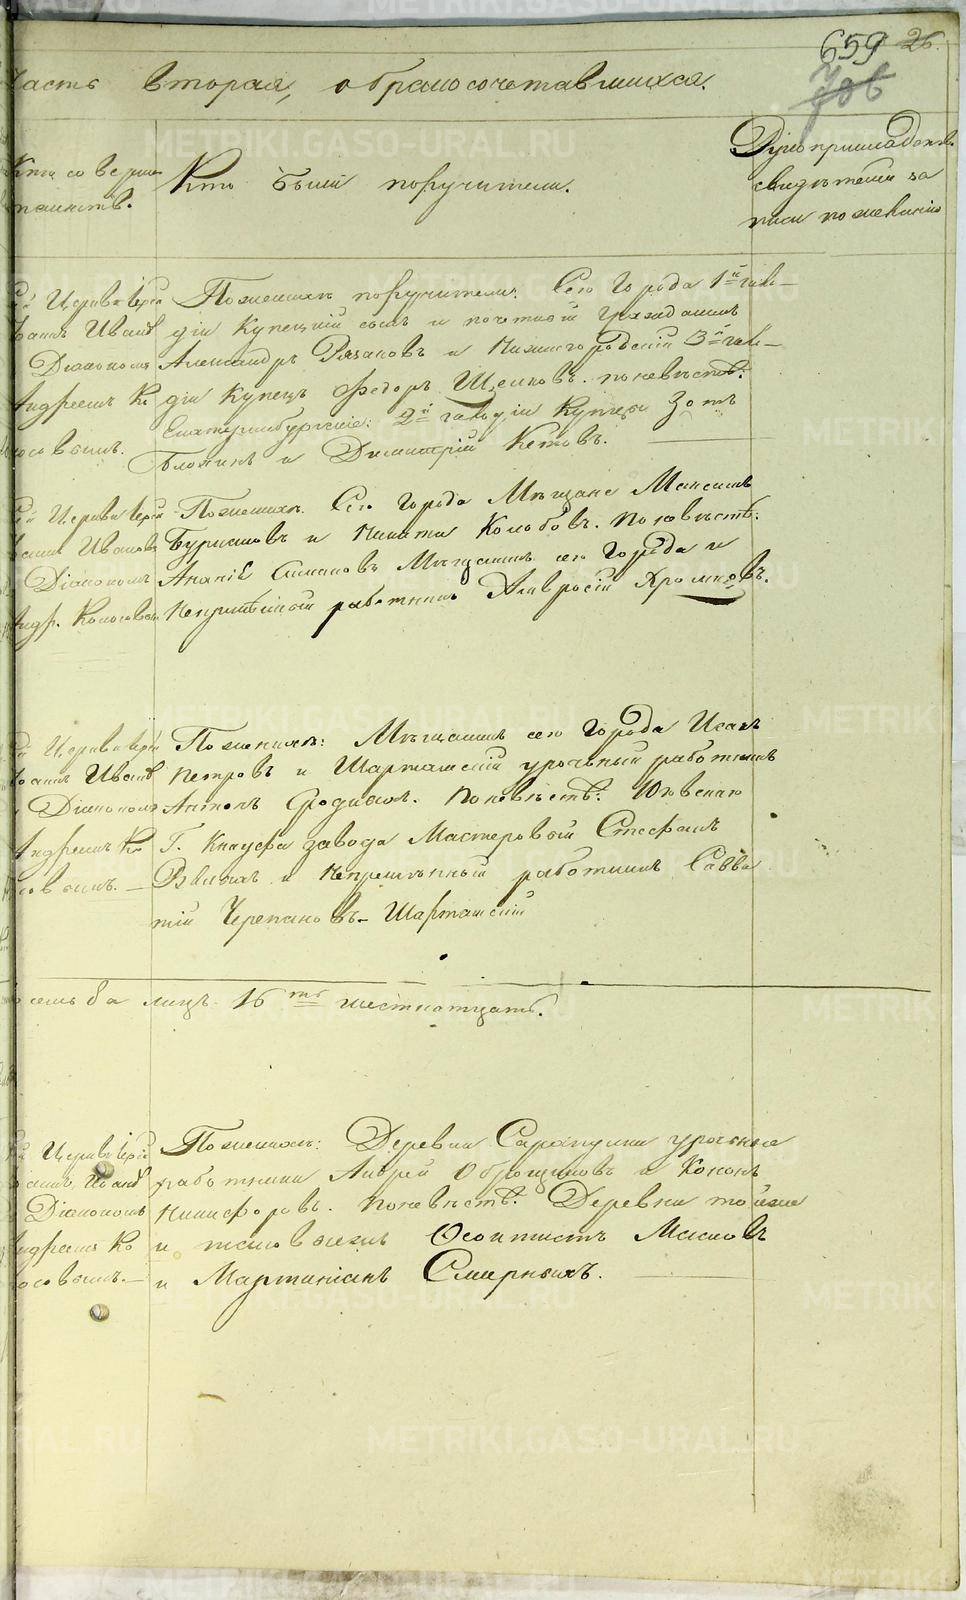 659 26.
706
Часть вторая, о бракосочетавшихся.
Кто совершал таинство.
Кто были поручители.
Рукоприкладство свидетелей записи по желанию
Сей Церкви Іерей Іоаннъ Ивановъ Діакономъ Андреемъ Колосовымъ.
По женихѣ поручители: Сего Города 1й гиль-
діи Купецкій сынъ и почетный гражданинъ
Александръ Рязановъ и Нижегородскій 3й гиль-
діи Купецъ Федоръ Щелковъ. По невѣстѣ:
Екатеринбургскіе: 2й гильдіи Купцы Зотъ
Блохинъ и Димитрій Китовъ.
Сей Церкви Іерей Іоаннъ Ивановъ Діакономъ Андр. Колосовымъ
По женихѣ. Сего Города Мѣщане Максимъ
Бурмаковъ и Никита Колобовъ. По невѣстѣ:
Ананій Симановъ Мѣщанинъ сего Города и
Непремѣнный работникъ Амвросій Хромцовъ.
Сей Церкви Іерей Іоаннъ Ивановъ Діакономъ Андреемъ Колосовымъ.
По женихѣ: Мѣщанинъ сего Города Исакъ
Петровъ и Шарташскій урочный работникъ
Антонъ Фродинъ. По невѣстѣ: Юговскаго
Г. Кнауфа завода Мастеровый Стефанъ
и Непремѣнный работникъ Савва
тій Черепановъ Шарташскій
лицъ 16ть шестнатцать.
Сей Церкви Іерей Іоаннъ Ивановъ Діакономъ Андреемъ Колосовымъ.
По женихѣ: Деревни Сарапулки урочные
работники Андрей Оброщиковъ и Кононъ
Никифоровъ. По невѣстѣ: Деревни той же
и таковыежъ Феоктистъ Масловъ
и Мартиніанъ Смирныхъ.
METRIKI.GASO-URAL.RU